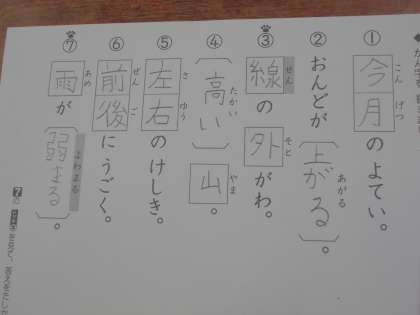 ① 今月のよてい。
こんげつ
② おんどが(上がる)。
あがる
③ 線の外がわ。
せん
そと
④ (高い)山。
たかい
やま
⑤ 左右のけしき。
さゆう
⑥ 前後にうごく。
ぜんご
⑦ 雨が(弱まる)。
あめ
よわまる